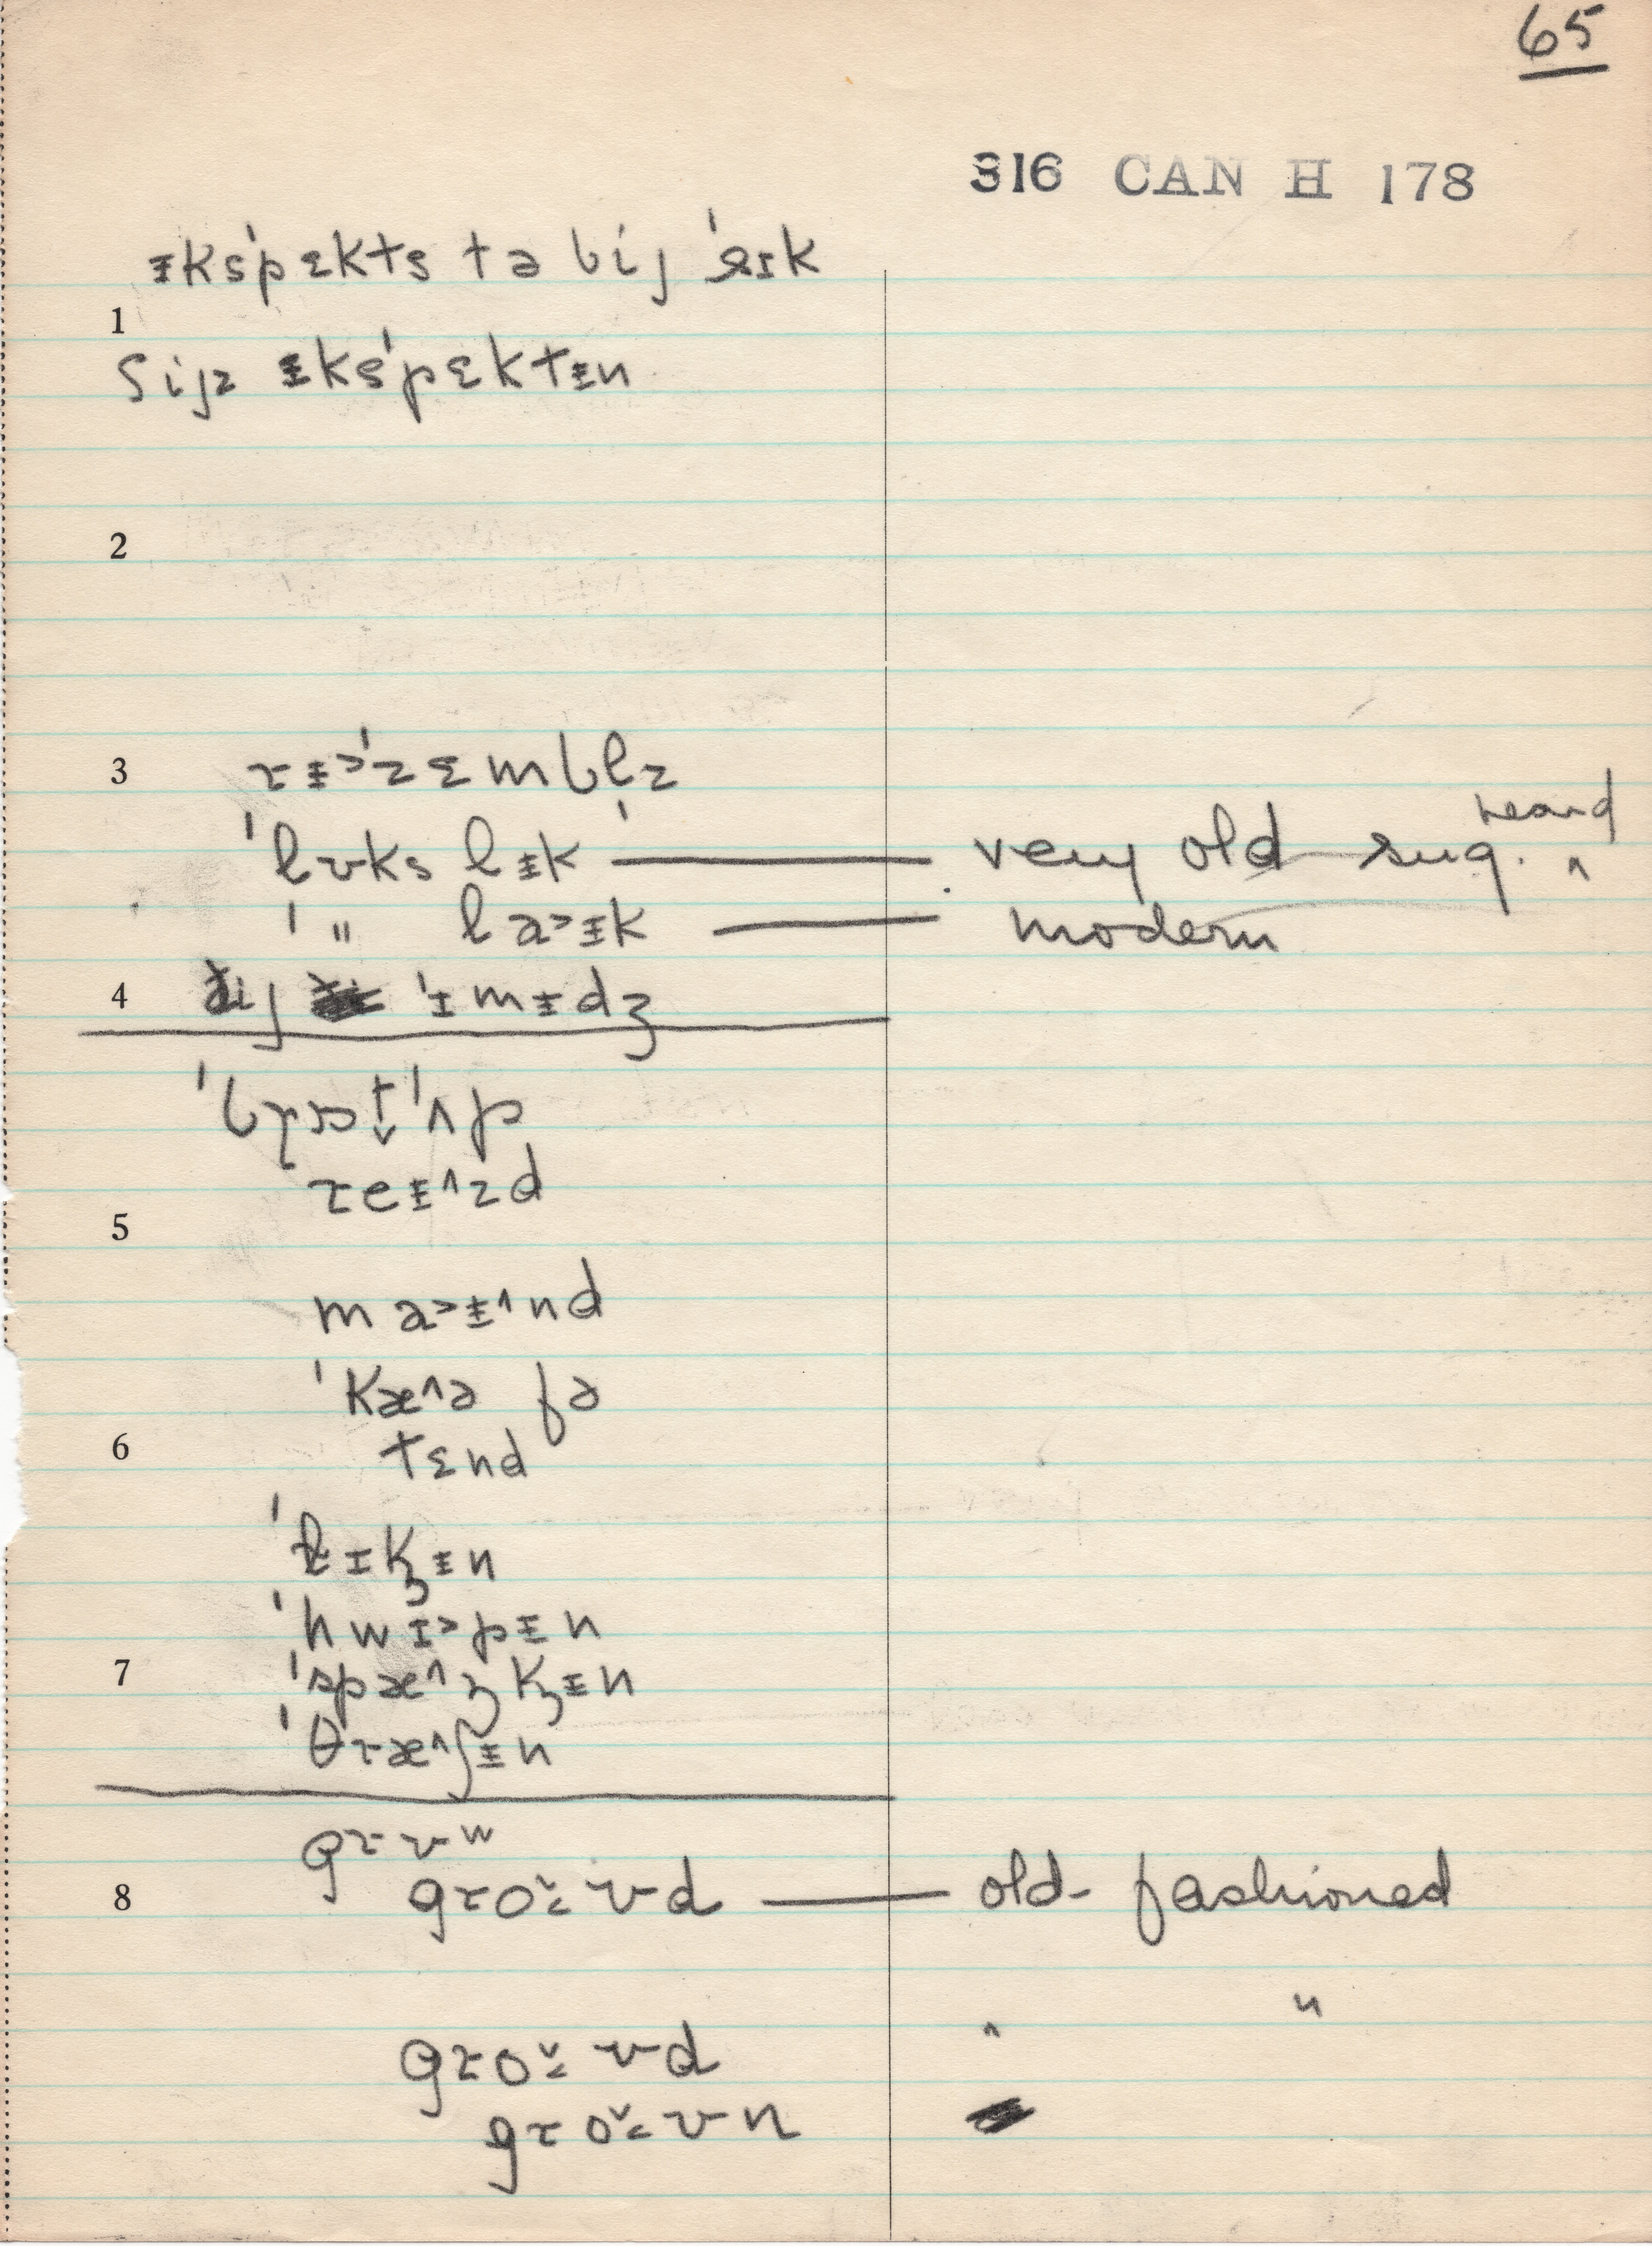 65
316 CAN H 178
ᵻkˈspɛkts tə bij ˈsɪk
1
ʃijz ᵻkˈspɛktᵻn
2
3 rᵻ˃ˈzɛmblz
ˈlʊks lᵻk — very old sug. ^ heard
ˈ " la˃ᵻk — modern
4 ðij ˈɪmᵻdʒ
ˈbrɔt ˈʌp
reᵻ˄zd
5
ma˃ᵻ˄nd
ˈkæ˄ə fə
6 tɛnd
ɪk̡ᵻn
ˈhwɪ˃pᵻn
7 ˈspæ˄ŋk̡ᵻn
ˈθræ˄ʃᵻn
grʊʷ
8 groˇ˂ʊd — old-fashioned
groˇ˂ʊd " "
groˇ˂ʊn